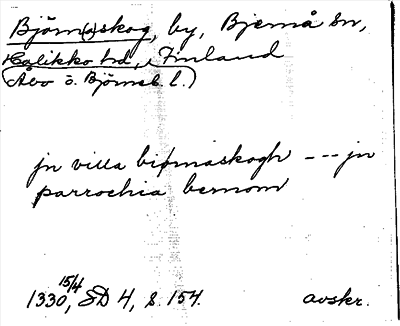 Björn(s)skog, by, Bjernå sn,
Halikko hd, Finland
(Åbo o. Björneb. l.)
jn villa biornaskogh --- jn
parrochia bernom
1330 15/4, SD 4, s. 154. avskr.